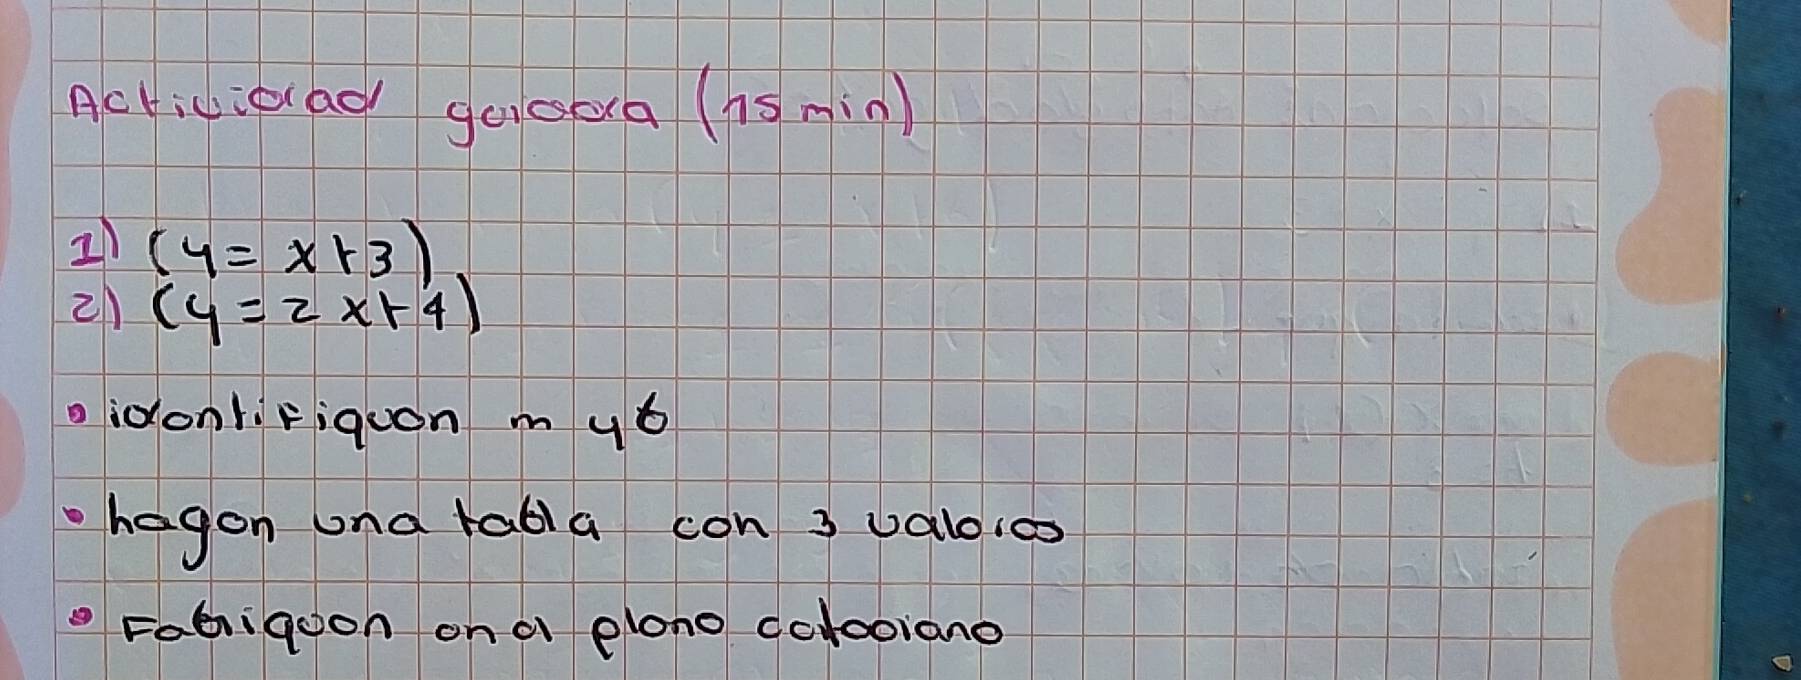 Actividad guiada (15 min)
1) (y = x+3)
2) (y = 2x+4)
• identifiquen m y b
• hagan una tabla con 3 valores
• Fabriquen en el plano cartesiano